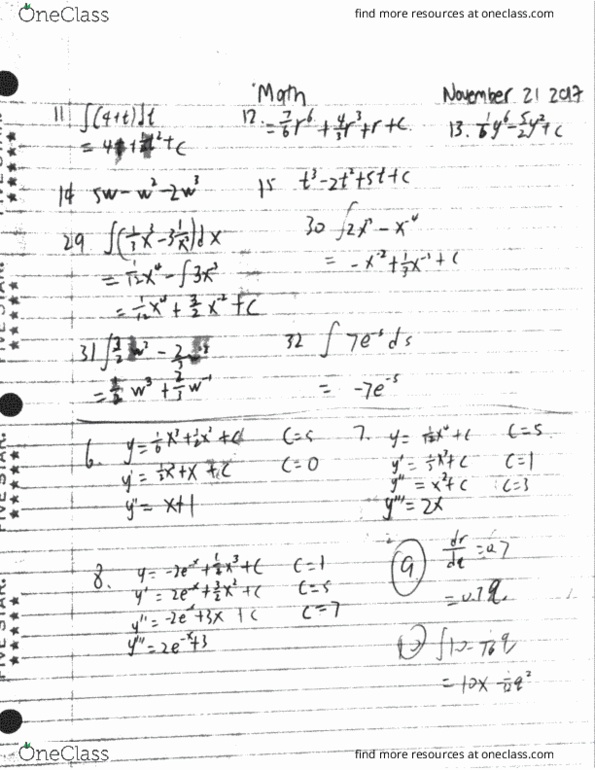 OneClass
find more resources at oneclass.com
Math
November 21 2017
11 ∫(4+t)dt
12. = 7/6 r^6 + 4/3 r^3 + r + C
13. 1/6 y^6 - 5/2 y^2 + C
14 5w - w^2 - 2w^3
15 t^3 - 2t^2 + 5t + C
29 ∫(1/3 x^3 - 3 1/x^3)dx
= 1/12 x^4 - ∫3x^3
= 1/12 x^4 + 3/2 x^-2 + C
30 ∫2x^-3 - x^-4
= -x^-2 + 1/3 x^-1 + C
31
32 ∫ 7e^-s ds
= -7e^-s
6. y = 1/6 x^3 + 1/2 x^2 + C C=5
y' = 1/2 x^2 + x + C C=0
y'' = x+1
7. y = 1/12 x^4 + C C=5
y' = 1/3 x^3 + C C=1
y'' = x^2 + C C=3
y''' = 2x
8. y = -2e^-x + 1/2 x^3 + C C=1
y' = 2e^-x + 3/2 x^2 + C C=5
y'' = -2e^-x + 3x + C C=7
y''' = 2e^-x + 3
9
= 0.7q
FIVE STAR
OneClass
find more resources at oneclass.com